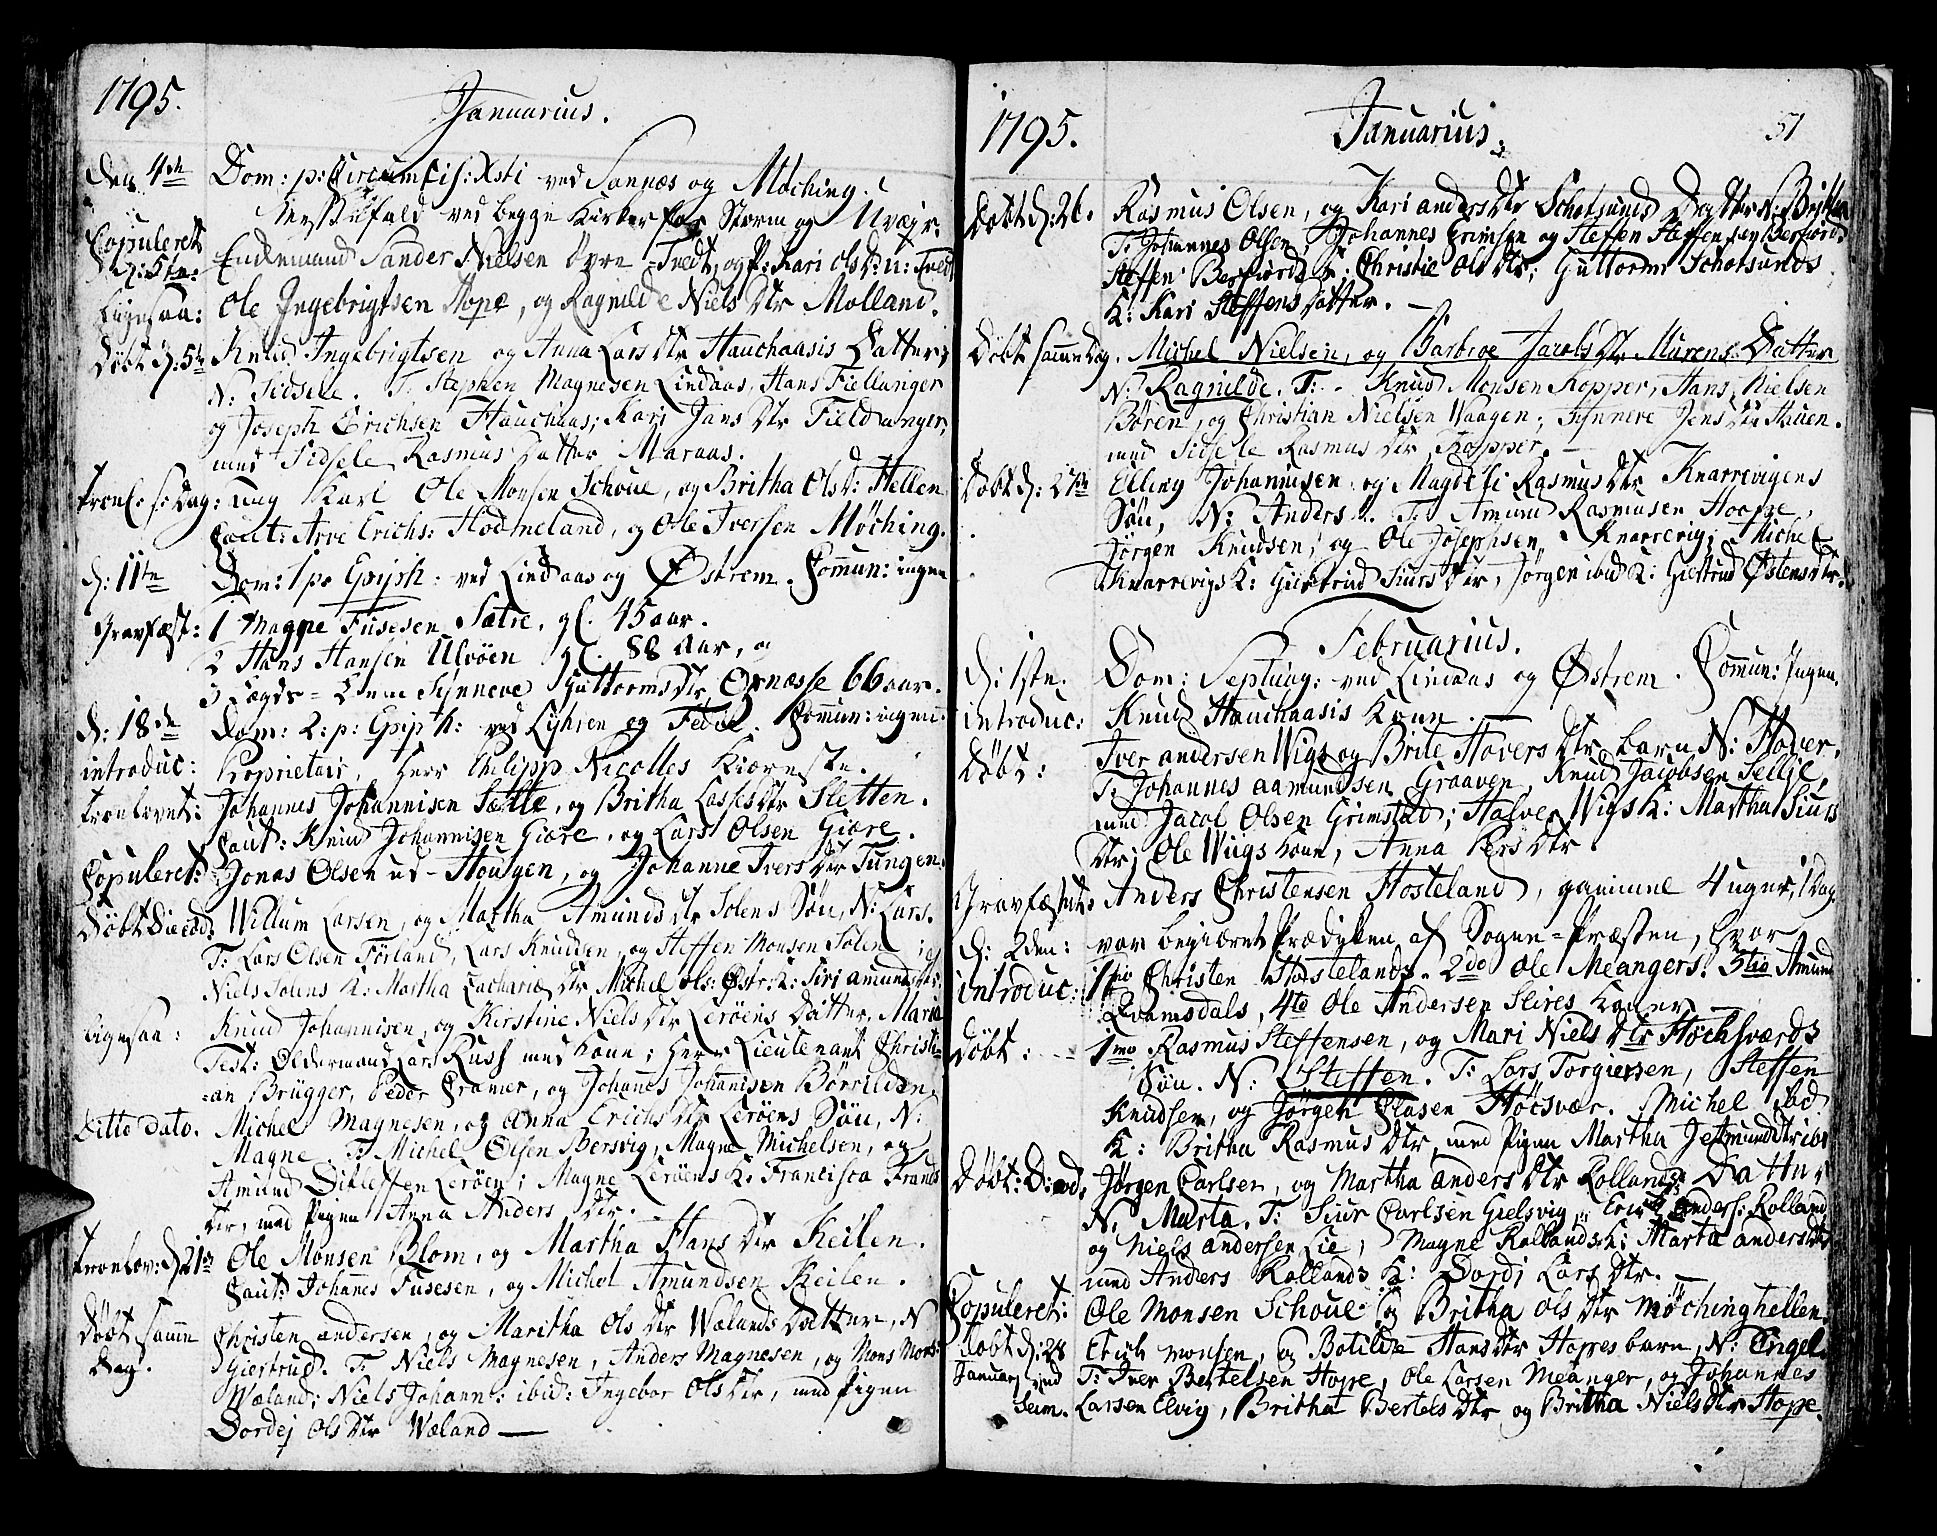 1795.
Januarius.
Den 4de Dom: p: Circumcis: Xsti ved Sannæs og Møching.
Messefald ved begge Kirker for Storm og Uvejr.
Copuleret d: 5te: Enckemand Sander Nielsen Øvre-Tvedt, og P: Kari Ols D: n: Tvedt
Ligesaa: Ole Ingebrigtsen Hope, og Ragnilde Niels Dtr Molland.
Döbt d: 5te Knud Ingebrigtsen og Anna Lars Dtr Hauchaasis Datter;
N: Sidsele. T: Stephen Magnesen Lindaas, Hans Fiellanger
og Joseph Erichsen Hauchaas; Kari Jans Dtr Fieldanger,
med Sidsele Rasmus Datter Maraas.
Trol: s: Dag: ung Karl Ole Monsen Schoue, og Britha Ols D: Hellen
Caut: Arve Erichs: Hodneland, og Ole Iversen Møching.
d: 11te Dom: 1 p: Epiph: ved Lindaas og Østrem. Commun: ingen
Gravfæst: 1 Magne Fusesen Sætre, gl. 45 aar.
2 Hans Hansen Ulvöen gl. 88 Aar, og
3 Lægds-Lem Synneve Guttorms Dtr Ornæsse 66 aar.
d: 18de Dom: 2: p: Epiph: ved Lyhren og Fedie. Commun: ingen.
introduc: Proprietair, Herr Philipp Nicolles Kiæreste.
Trolovet: Johannes Johannisen Sætte, og Britha Lasses Dtr Sletten.
Caut: Knud Johannisen Giære, og Lars Olsen Giære.
Copuleret: Jonas Olsen ud-Hougen, og Johanne Ivers Dtr Tungen.
Döbt Die eod: Willum Larsen, og Martha Amunds Dtr Solens Søn, N: Lars.
T: Lars Olsen Förland, Lars Knudsen, og Steffen Monsen Solen; og
Niels Solens K: Martha Zachariæ Dtr Michel Ols: Østr: K: Siri Amunds Dtr.
Ligesaa: Knud Johannisen, og Kirstine Niels Dtr Leröens Datter, Maria
Test: Oldermand Lars Russ med Kone; Herr Lieutenant Christi-
=an Brügger, Peder Cramer, og Johanes Johannisen Börvilden.
Ditto dato. Michel Magnesen, og Anna Erichs Dtr Leröens Søn, N:
Magne. T: Michel Olsen Bersvig, Magne Michelsen, og
Amund Ditleffen Leröen; Magne Leröens K: Francisca Frands
Dtr, med Pigen Anna Anders Dtr.
Trolov: d: 21de Ole Monsen Blom, og Martha Hans Dtr Keilen.
Caut: Johannes Fusesen, og Michel Amundsen Keilen.
Döbt samme Dag. Christen Andersen, og Maritha Ols Dtr Wælands Datter, N
Giertrud. T: Niels Magnesen, Anders Magnesen, og Mons Mons:
Wæland; Niels Johann: ibid: Ingebor Ols Dtr, med Pigen
Dordej Ols Dtr Wæland
1795.
Januarius.
51
Döbt d: 26. Rasmus Olsen, og Kari Anders Dtr Schotsunds Datter N: Britha
T: Johannes Olsen, Johannes Grimsen og Steffen Steffensen Berfiord;
Steffen Berfiords K: Christie Ols Dtr; Guttorm Schotsunds
K: Kari Steffens Datter.
Döbt samme Dag. Michel Nielsen, og Barbroe Jacobs Dtr Murens Datter
N: Ragnilde. T: Knud Monsen Kopper, Hans Nielsen
Bören, og Christian Nielsen Waagen; Synnere Jens Dtr Hauen.
med Sidsele Rasmus Dtr Kopper.
Döbt d: 27de Elling Johannisen og Magdeli Rasmus Dtr Knarrevigens
Søn, N: Anders. T: Amund Rasmusen Hoope,
Jørgen Knudsen, og Ole Josephsen Knarrevig; Michel
Knarrevigs K: Giertrud Siurs Dtr, Jørgen ibid K: Giertrud Østens Dtr.
Februarius.
d: 1ste. Dom: Septuag: ved Lindaas og Østrem. Commun: Ingen.
introduc: Knud Hauchaasis Kone.
Döbt: Iver Andersen Wigs og Brite Hovers Dtr barn N: Hover.
T: Johannes Aamundsen Graaven, Knud Jacobsen Seilje,
med Jacob Olsen Grimstad; Halve Wigs K: Martha Siurs
Dtr; Ole Wiigs Kone, Anna Pers Dtr.
Gravfæstet: Anders Christensen Hosteland, gammel 4 uger, 1 Dag.
d: 2den: var begiæret Prædyken af Sogne-Præsten, hvor
introduc: 1mo Christen Hostelands. 2do Ole Meangers. 3tio Amund
Qvamsdals, 4to Ole Andersen Seires Koner
Döbt: 1mo Rasmus Steffensen, og Mari Niels Dtr Höchsværds
Søn. N: Steffen. T: Lars Torgiersen, Steffen
Knudsen, og Jørgen Clasen Höcsvær. Michel ibid
K: Britha Rasmus Dtr, med Pigen Martha Jetmunds Dtr ibid
Döbt: D: eod: Jørgen Carlsen, og Martha Anders Dtr Rollands Datter
N. Marta. T: Siur Carlsen Gielsvig, Erich Anders: Rolland
og Niels Andersen Lie; Magne Rollands K: Marta Anders Dtr
med Anders Rollands K: Dordj Lars Dtr.
Copuleret: Ole Monsen Schoue og Britha Ols Dtr Møchinghellen.
Döbt d: 28 Januarj ved Seim. Erich Monsen, og Botilde Hans Dtr Hopes barn, N: Engel.
T: Iver Bertelsen Hope, Ole Larsen Meanger, og Johannes
Larsen Elvig, Britha Bertels Dtr og Britha Niels Dtr Hope.